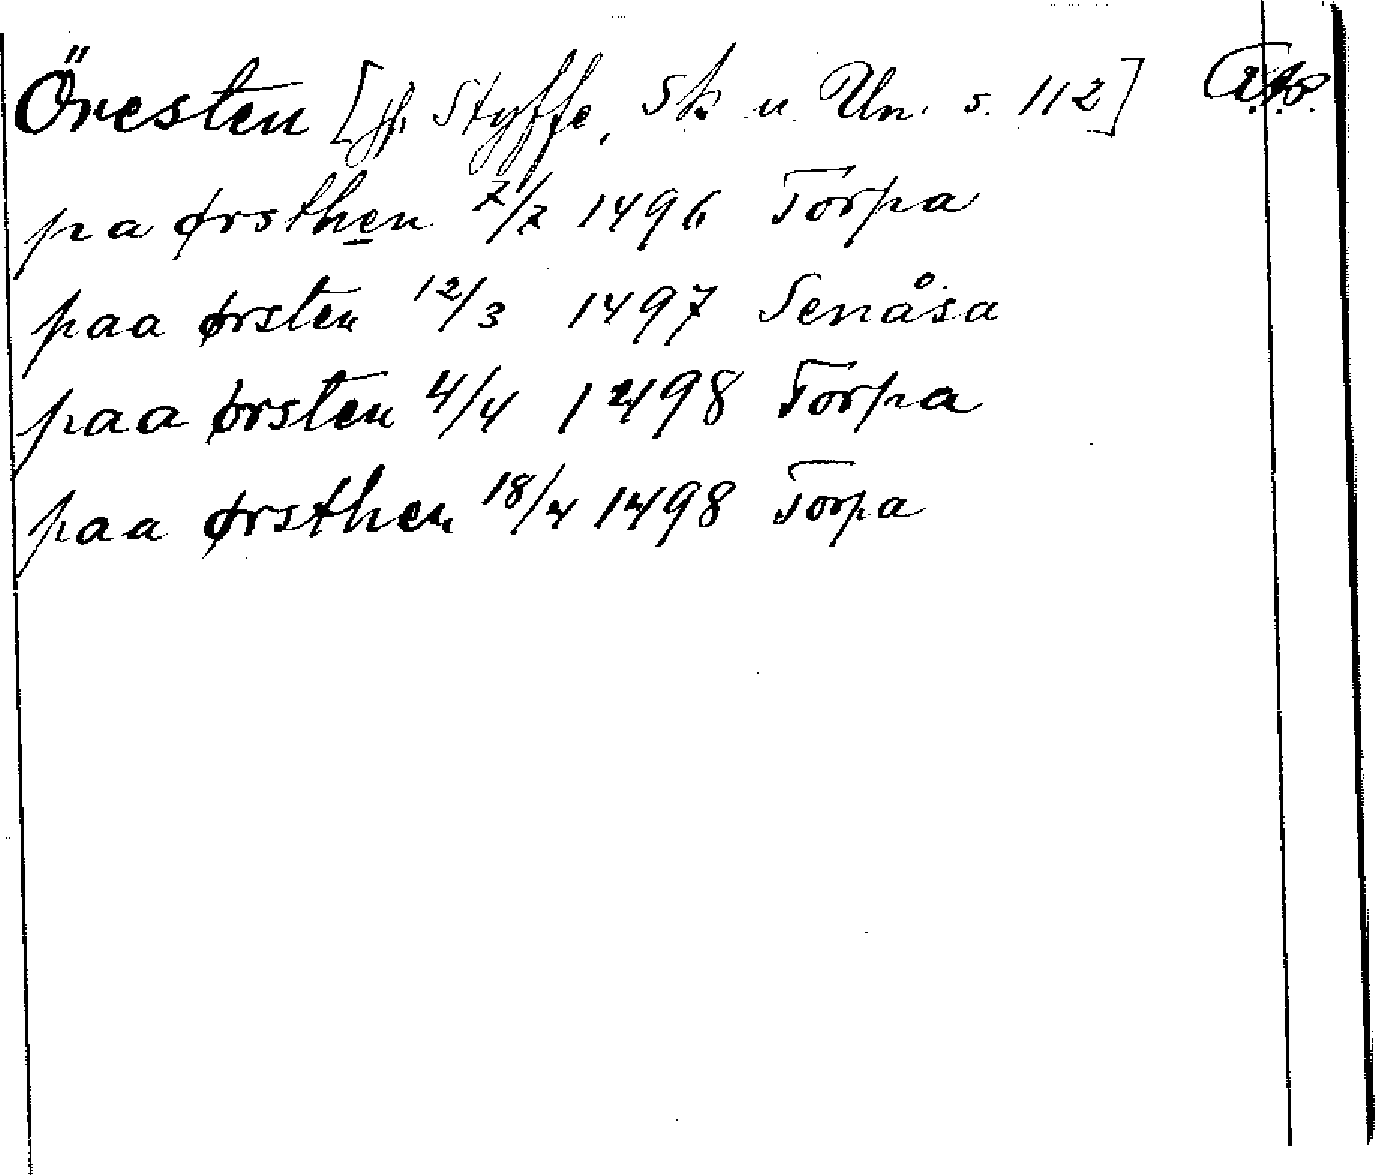 Öresten [jf. Styffe, Sk u Un. s. 112]
pa ørsthen 1496 Torpa
paa ørsten 12/3 1497 Senåsa
paa ørsten 4/4 1498 Torpa
paa ørsthen 18/4 1498 Torpa